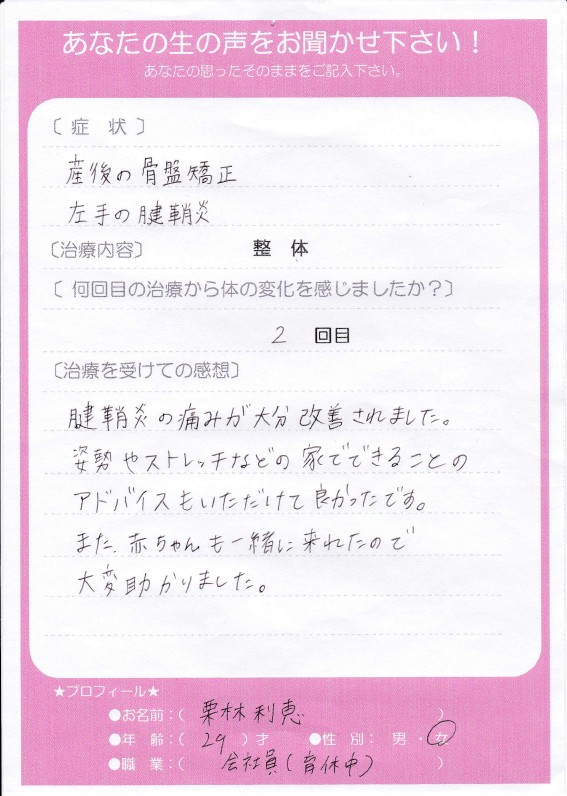 あなたの生の声をお聞かせ下さい！
あなたの思ったそのままをご記入下さい。
〔 症　状 〕
産後の骨盤矯正
左手の腱鞘炎
〔治療内容〕　整　体
〔 何回目の治療から体の変化を感じましたか？〕
2 回目
〔治療を受けての感想〕
腱鞘炎の痛みが大分改善されました。
姿勢やストレッチなどの家でできることの
アドバイスもいただけて良かったです。
また、赤ちゃんも一緒に来れたので
大変助かりました。
★プロフィール★
●お名前：( 栗林利恵 )
●年　齢：( 29 ) 才　●性　別：　男 ・ 女
●職　業：( 会社員(育休中) )